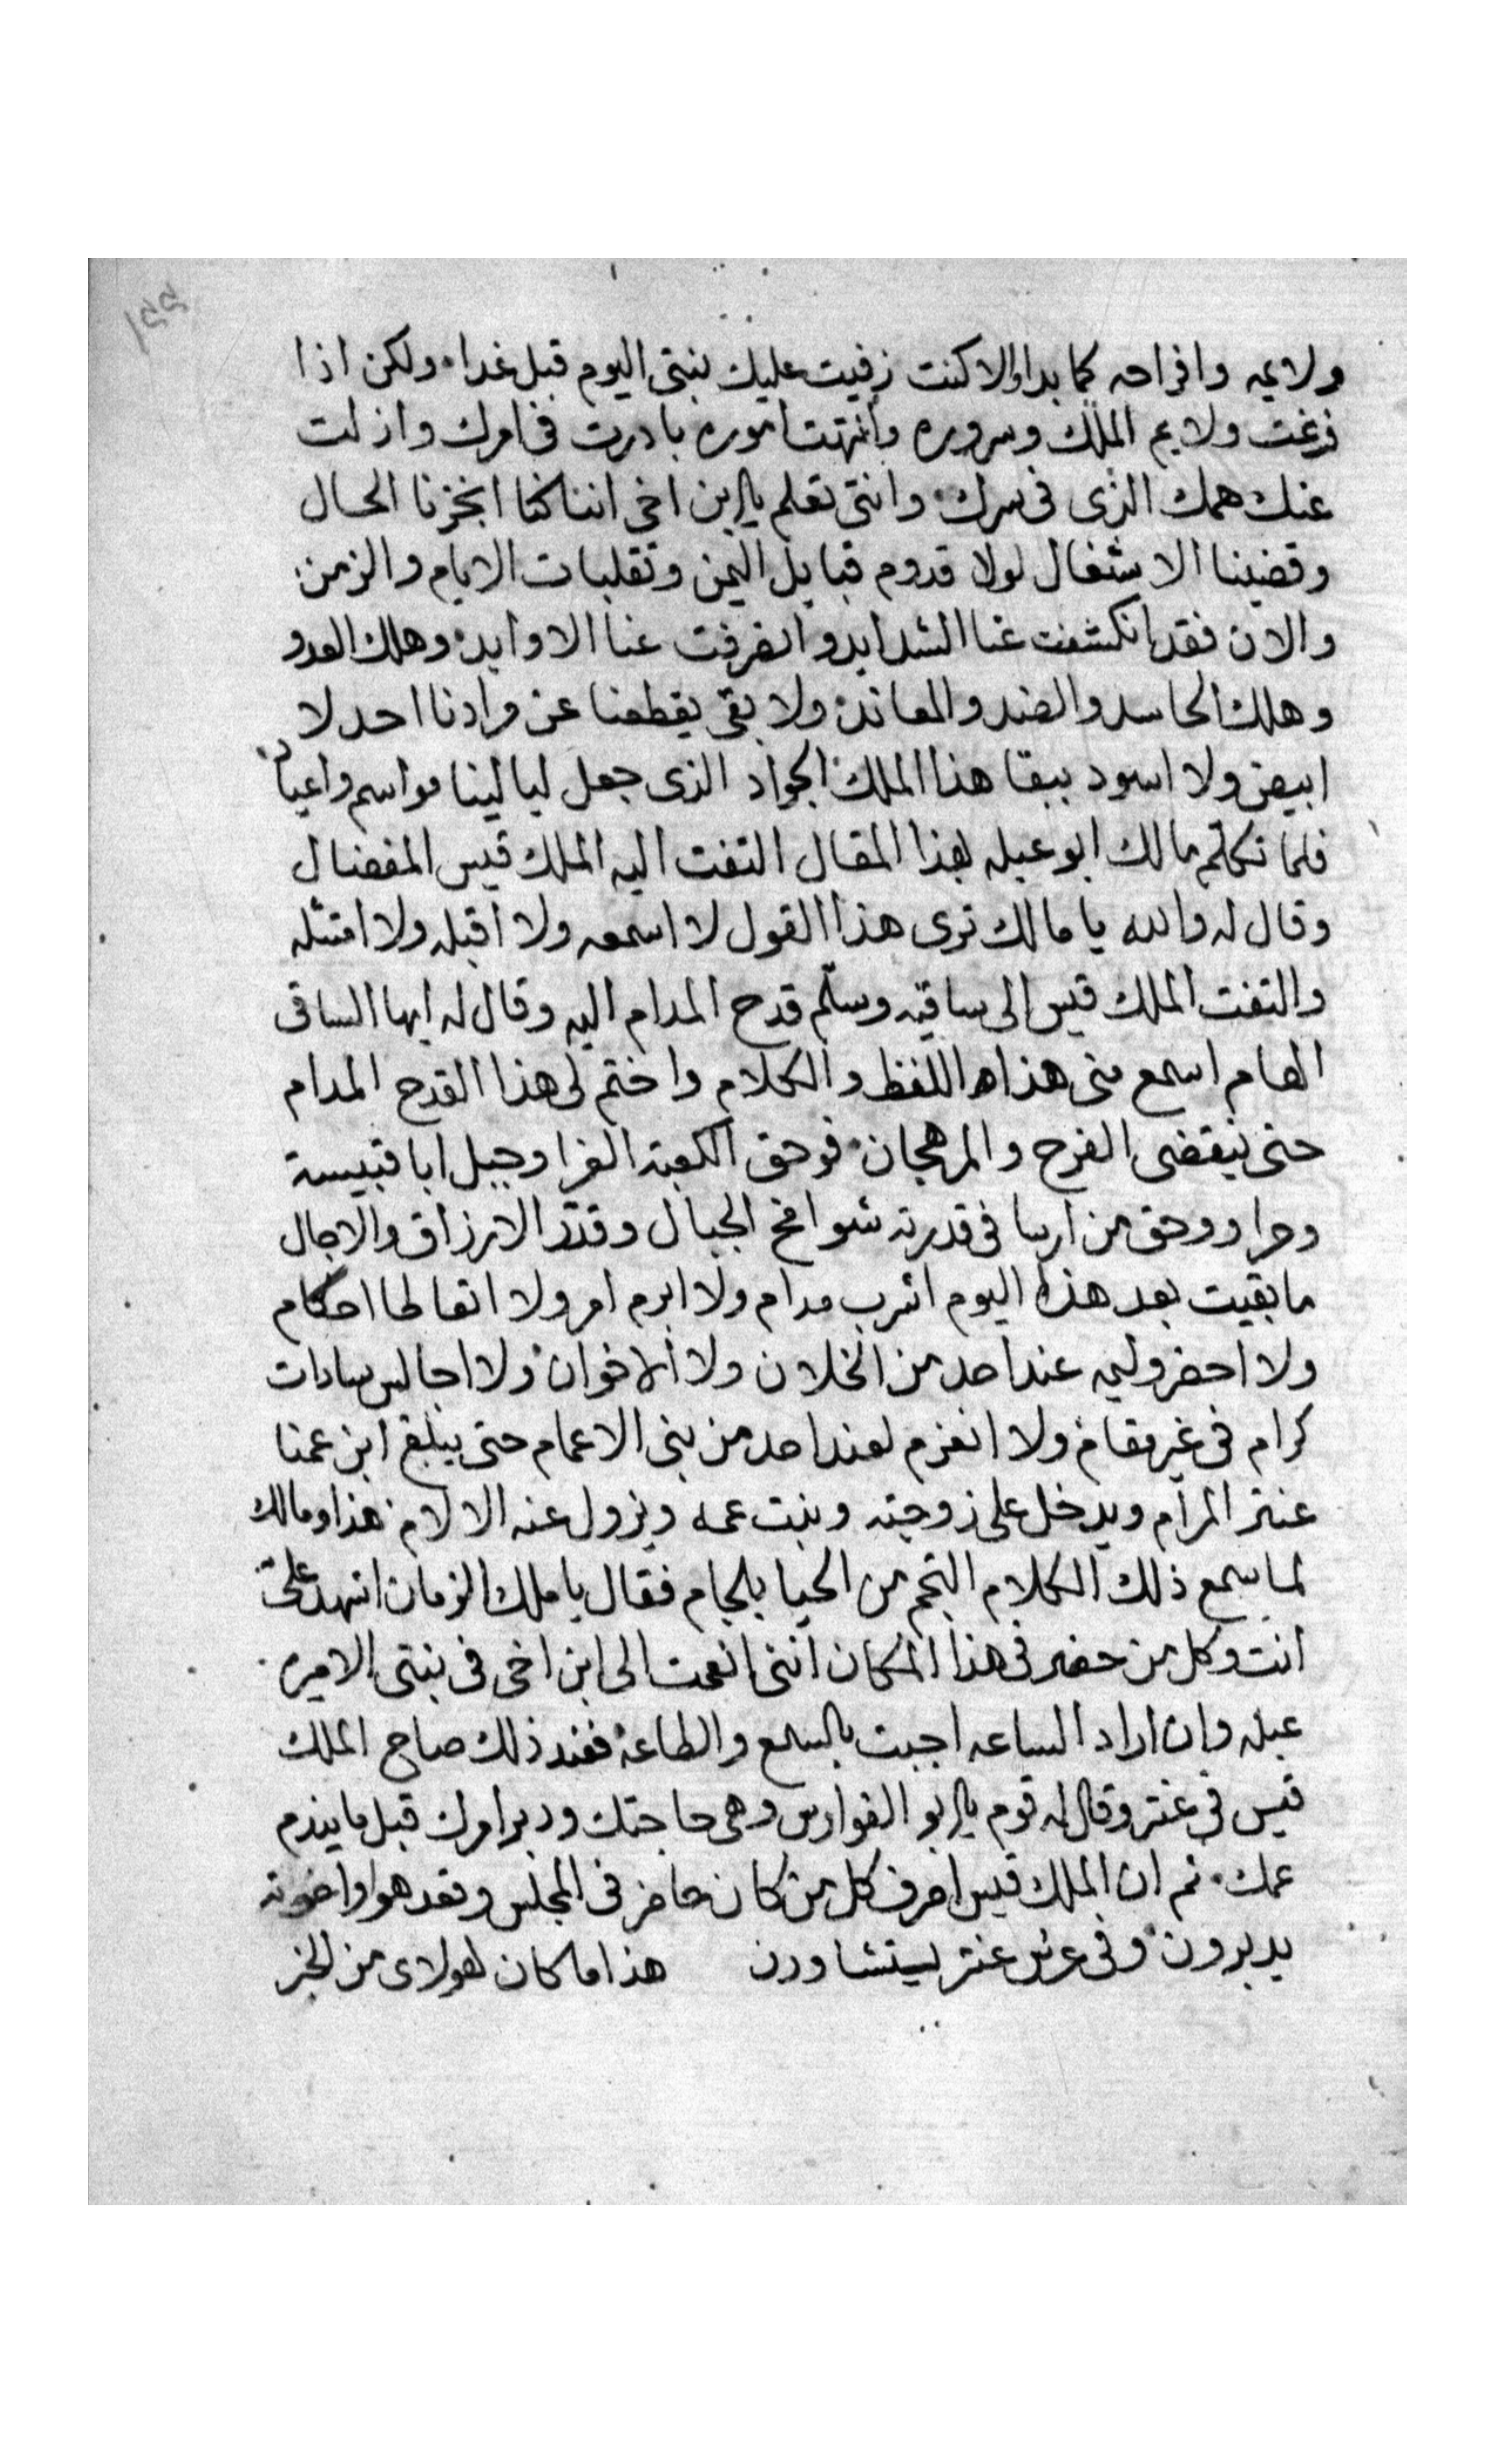 ولايمه وافراحه كما بدا والا كنت زفيت عليك بنتى اليوم قبل غدا ولكن اذا
فرغت ولايم الملك وسروره وانتهت اموره بادرت فى امرك وازلت
عنك همك الذى فى سرك وانتى تعلم يا ابن اخى اننا كنا انجزنا الحال
وقضينا الاشغال لولا قدوم قبايل اليمن وتقلبات الايام والزمن
والان فقد انكشفت عنا الشدايد وانفرفت عنا الاوابد وهلك العدو
وهلك الحاسد والضد والمعاند ولا بقى يقطعنا عن مرادنا احد لا
ابيض ولا اسود ببقا هذا الملك الجواد الذى جعل ليالينا مواسم واعياد
فلما تكلم مالك ابو عبله بهذا المقال التفت اليه الملك قيس المفضال
وقال له والله يا مالك ترى هذا القول لا اسمعه ولا اقبله ولا امتثله
والتفت الملك قيس الى ساقيه وسلم قدح المدام اليه وقال له ايها الساقى
الهمام اسمع منى هذاه اللفظ والكلام واختم لى هذا القدح المدام
حتى ينقضى الفرح والمرهجان فوحق الكعبة الغرا وجبل ابا قبيسة
وحرا ووحق من ارسا فى قدرته شوامخ الجبال وقدر الارزاق والاجال
ما بقيت بعد هذا اليوم اشرب مدام ولا ابرم امر ولا اتعاطا احكام
ولا احضر وليمه عند احد من الخلان ولا الاخوان ولا اجالس سادات
كرام فى غير مقام ولا انعزم لعند احد من بنى الاعمام حتى يبلغ ابن عمنا
عنتر المرام ويدخل على زوجته وبنت عمه ويزول عنه الالام هذا ومالك
لما سمع ذلك الكلام التجم من الحيا بلجام فقال يا ملك الزمان اشهد على
انت وكل من حضر فى هذا المكان اننى انعمت الى ابن اخى فى بنتى الاميره
عبله وان اراد الساعه اجبت بالسمع والطاعه فعند ذلك صاح الملك
قيس فى عنتر وقال له قوم يا ابو الفوارس وهى حاجتك ودبر امرك قبل ما يندم
عمك ثم ان الملك قيس اصرف كل من كان حاضر فى المجلس وقعد هوا واخوته
يدبرون وفى عرس عنتر يستشاورن هذا ما كان لهولاى من الخبر